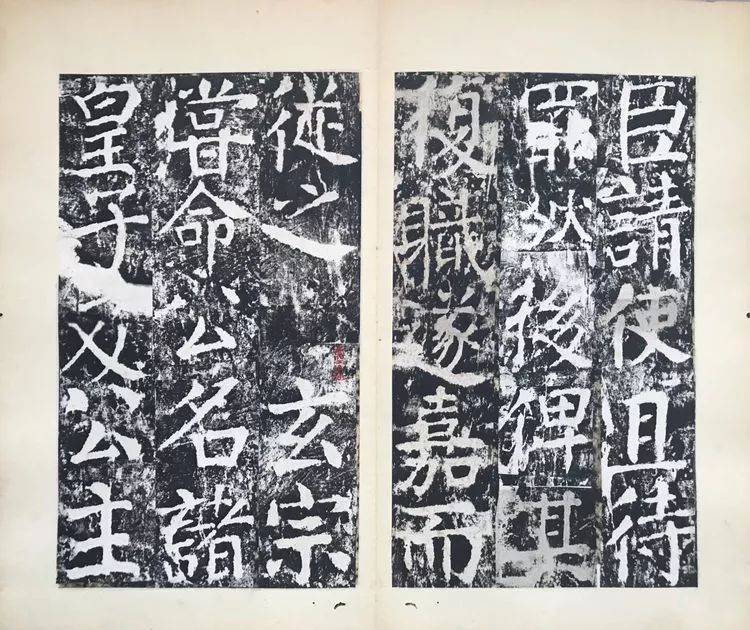 臣請使且待
罪然後俾其
復職遂嘉而
從之 玄宗
嘗命公名諸
皇子及公主